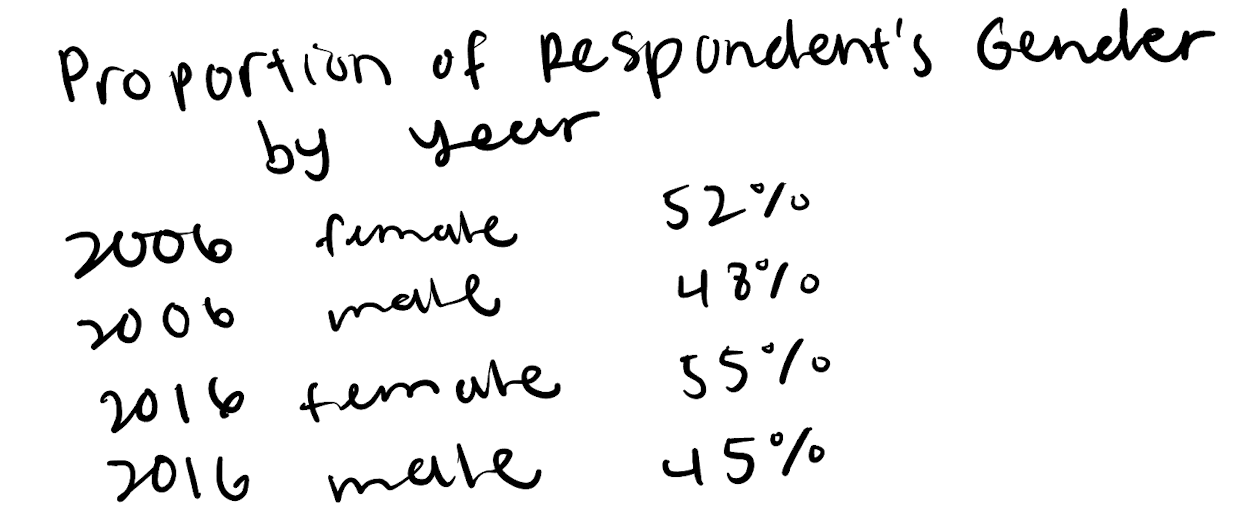 Proportion of Respondent's Gender
by year
2006 female 52%
2006 male 48%
2016 female 55%
2016 male 45%